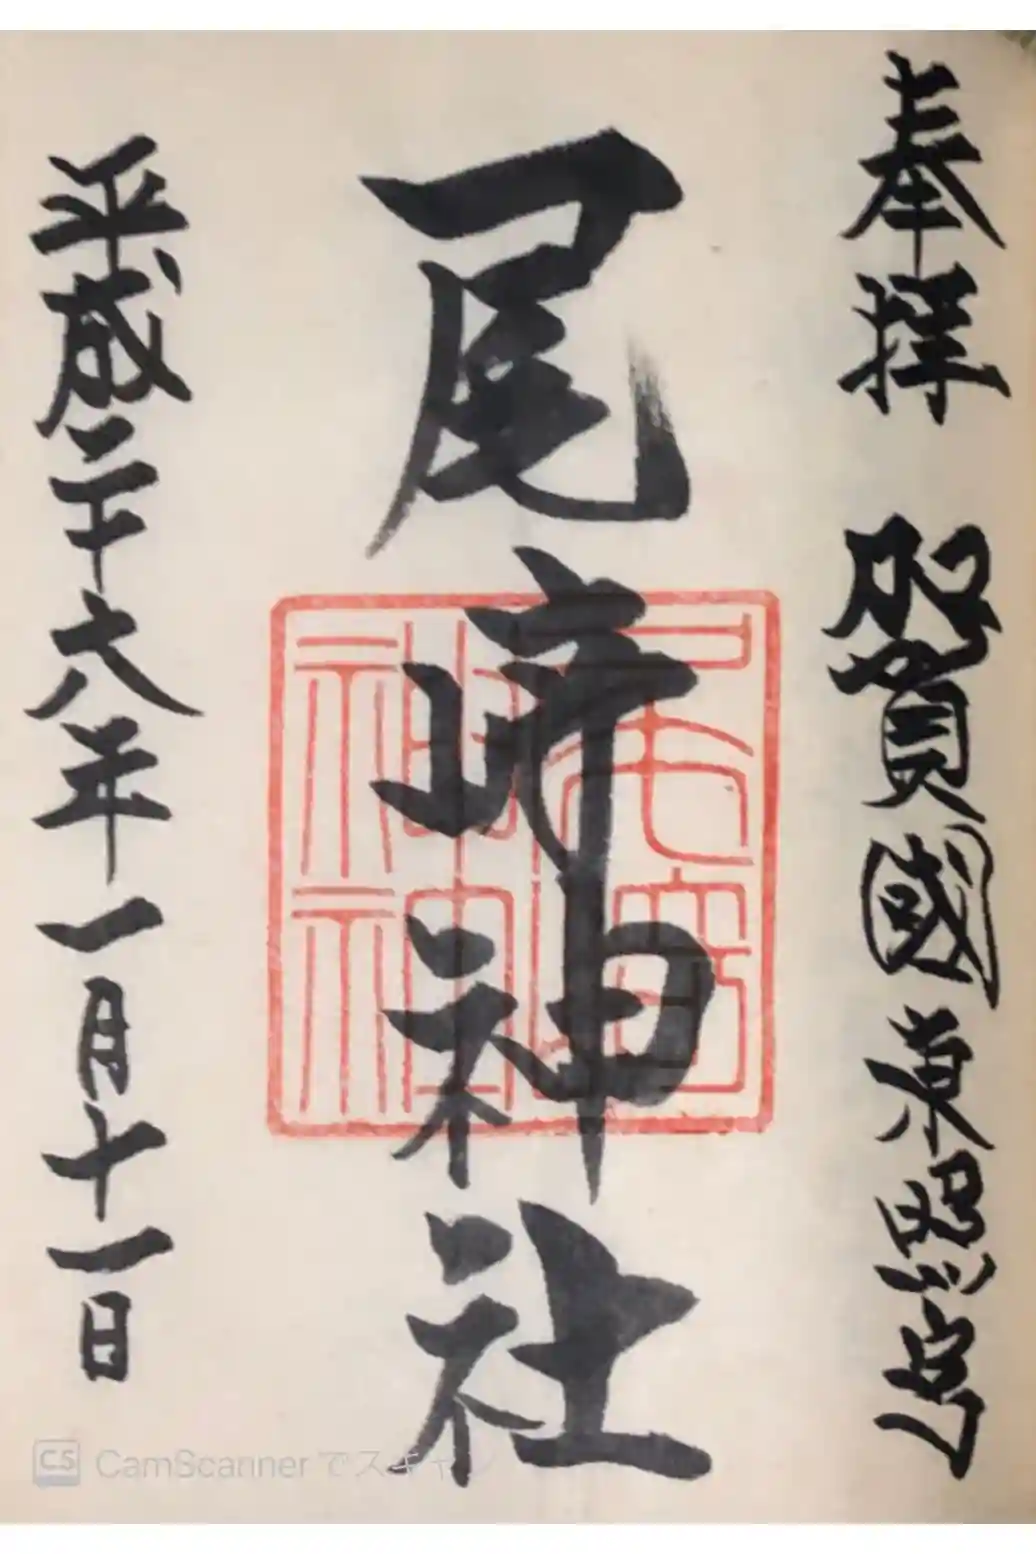 奉拝 加賀國東照宮
尾崎神社
平成二十六年一月十一日
CS CamScannerでスキャン